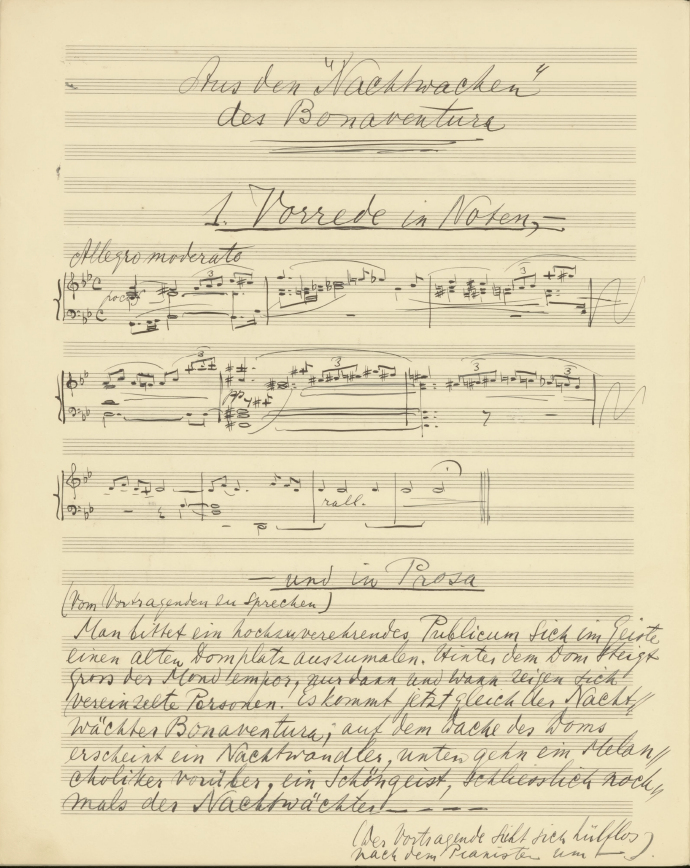 Aus den "Nachtwachen"
des Bonaventura
1. Vorrede in Noten, –
Allegro moderato
poco
3
3
3
pp
3
3
3
rall.
– und in Prosa
(Vom Vortragenden zu sprechen)
Man bittet ein hochzuverehrendes Publicum sich im Geiste
einen alten Domplatz auszumalen. Hinter dem Dom steigt
gross der Mond empor, nur dann und wann zeigen sich
vereinzelte Personen. Es kommt jetzt gleich der Nacht//
wächter Bonaventura; auf dem Dache des Doms
erscheint ein Nachtwandler, unten gehn ein Melan//
choliker vorüber, ein Schöngeist, schliesslich noch//
mals der Nachtwächter – – – –
(Der Vortragende sieht sich hülflos
nach dem Pianisten um –)